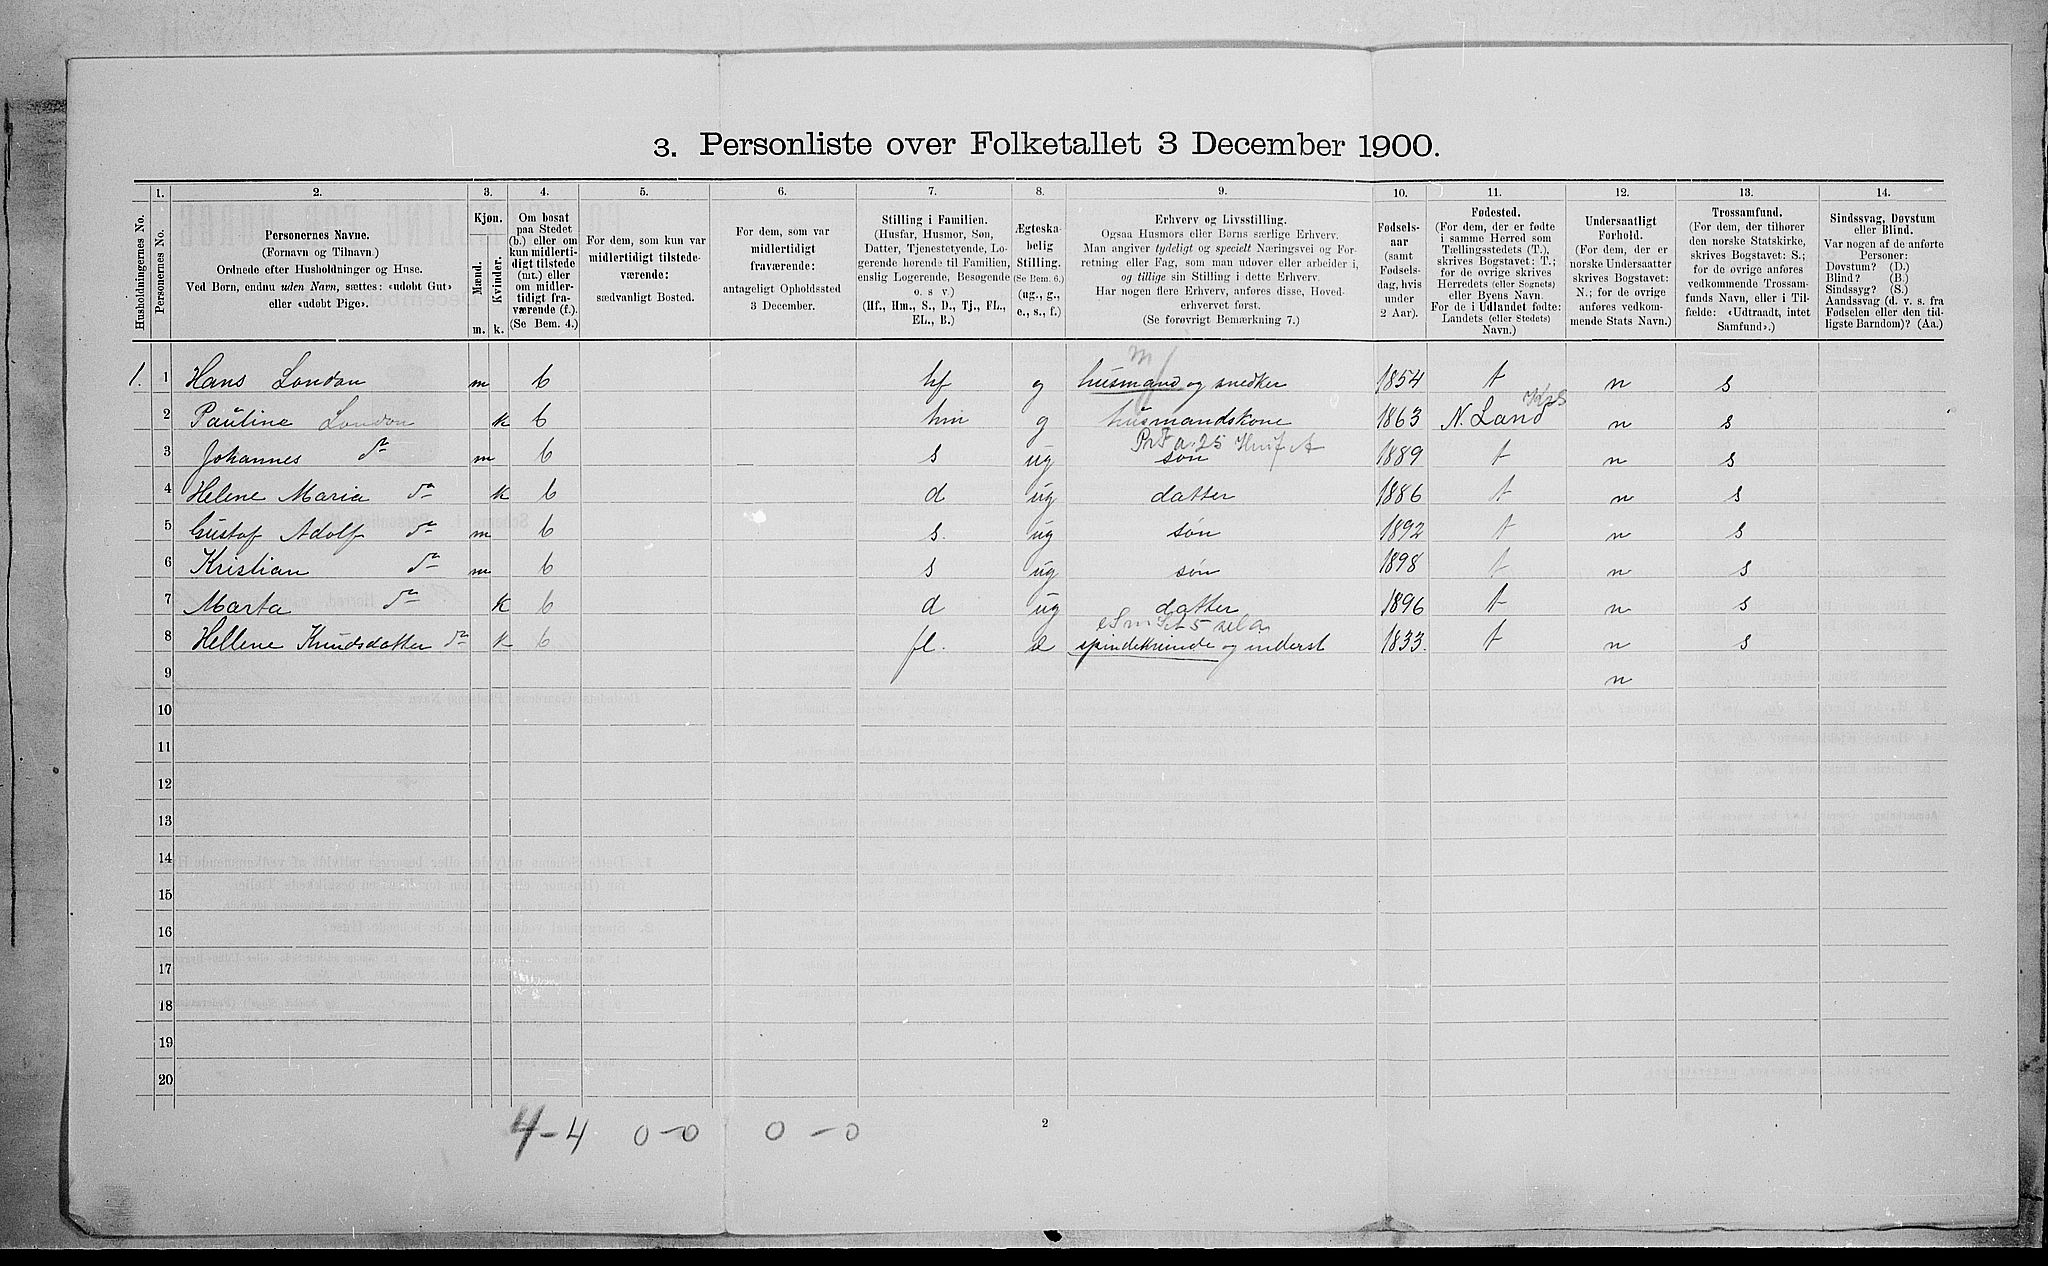 3. Personliste over Folketallet 3 December 1900.
1. 2. 3. 4. 5. 6. 7. 8. 9. 10. 11. 12. 13. 14.
Husholdningernes No.
Personernes No.
Personernes Navne.
(Fornavn og Tilnavn.)
Ordnede efter Husholdninger og Huse.
Ved Børn, endnu uden Navn, sættes: «udøbt Gut»
eller «udøbt Pige».
Kjøn.
Mænd.
Kvinder.
m. k.
Om bosat
paa Stedet
(b.) eller om
kun midlerti-
digt tilstede
(mt.) eller
om midler-
tidigt fra-
værende (f.).
(Se Bem. 4.)
For dem, som kun var
midlertidigt tilstede-
værende:
sædvanligt Bosted.
For dem, som var
midlertidigt
fraværende:
antageligt Opholdssted
3 December.
Stilling i Familien.
(Husfar, Husmor, Søn,
Datter, Tjenestetyende, Lo-
gerende hørende til Familien,
enslig Logerende, Besøgende
o. s. v.)
(Hf., Hm., S., D., Tj., FL.,
EL., B.)
Ægteska-
belig
Stilling.
(Se Bem. 6.)
(ug., g.,
e., s., f.)
Erhverv og Livsstilling.
Ogsaa Husmors eller Børns særlige Erhverv.
Man angiver tydeligt og specielt Næringsvei og For-
retning eller Fag, som man udøver eller arbeider i,
og tillige sin Stilling i dette Erhverv.
Har nogen flere Erhverv, anføres disse, Hoved-
erhvervet først.
(Se forøvrigt Bemærkning 7.)
Fødsels-
aar
(samt
Fødsels-
dag, hvis
under
2 Aar).
Fødested.
(For dem, der er fødte
i samme Herred som
Tællingsstedets (T.),
skrives Bogstavet: T.;
for de øvrige skrives
Herredets (eller Sognets)
eller Byens Navn.
For de i Udlandet fødte:
Landets (eller Stedets)
Navn.)
Undersaatligt
Forhold.
(For dem, der er
norske Undersaatter
skrives Bogstavet:
N.; for de øvrige
anføres vedkom-
mende Stats Navn.)
Trossamfund.
(For dem, der tilhører
den norske Statskirke,
skrives Bogstavet: S.;
for de øvrige anføres
vedkommende Trossam-
funds Navn, eller i Til-
fælde: «Udtraadt, intet
Samfund».)
Sindssvag, Døvstum
eller Blind.
Var nogen af de anførte
Personer:
Døvstum? (D.)
Blind? (B.)
Sindssyg? (S.)
Aandssvag (d. v. s. fra
Fødselen eller den tid-
ligste Barndom)? (Aa.)
m
1. 1 Hans Londan m b hf g husmand og snedker 1854 t n s
2 Pauline Londan k b hm g husmandskone 1863 N. Land n s
3 Johannes do m b s ug søn 1889 t n s
4 Helene Maria do k b d ug datter 1886 t n s
5 Gustaf Adolf do m b s. ug søn 1892 t n s
6 Kristian do m b s ug søn 1898 t n s
7 Marta do k b d ug datter 1896 t n s
8 Hellene Knudsdatter do k b fl. e spindekvinde og inderst 1833. t n s
9 n
10
11
12
13
14
15
16
17
18
19
20
4-4 0-0 0-0
2